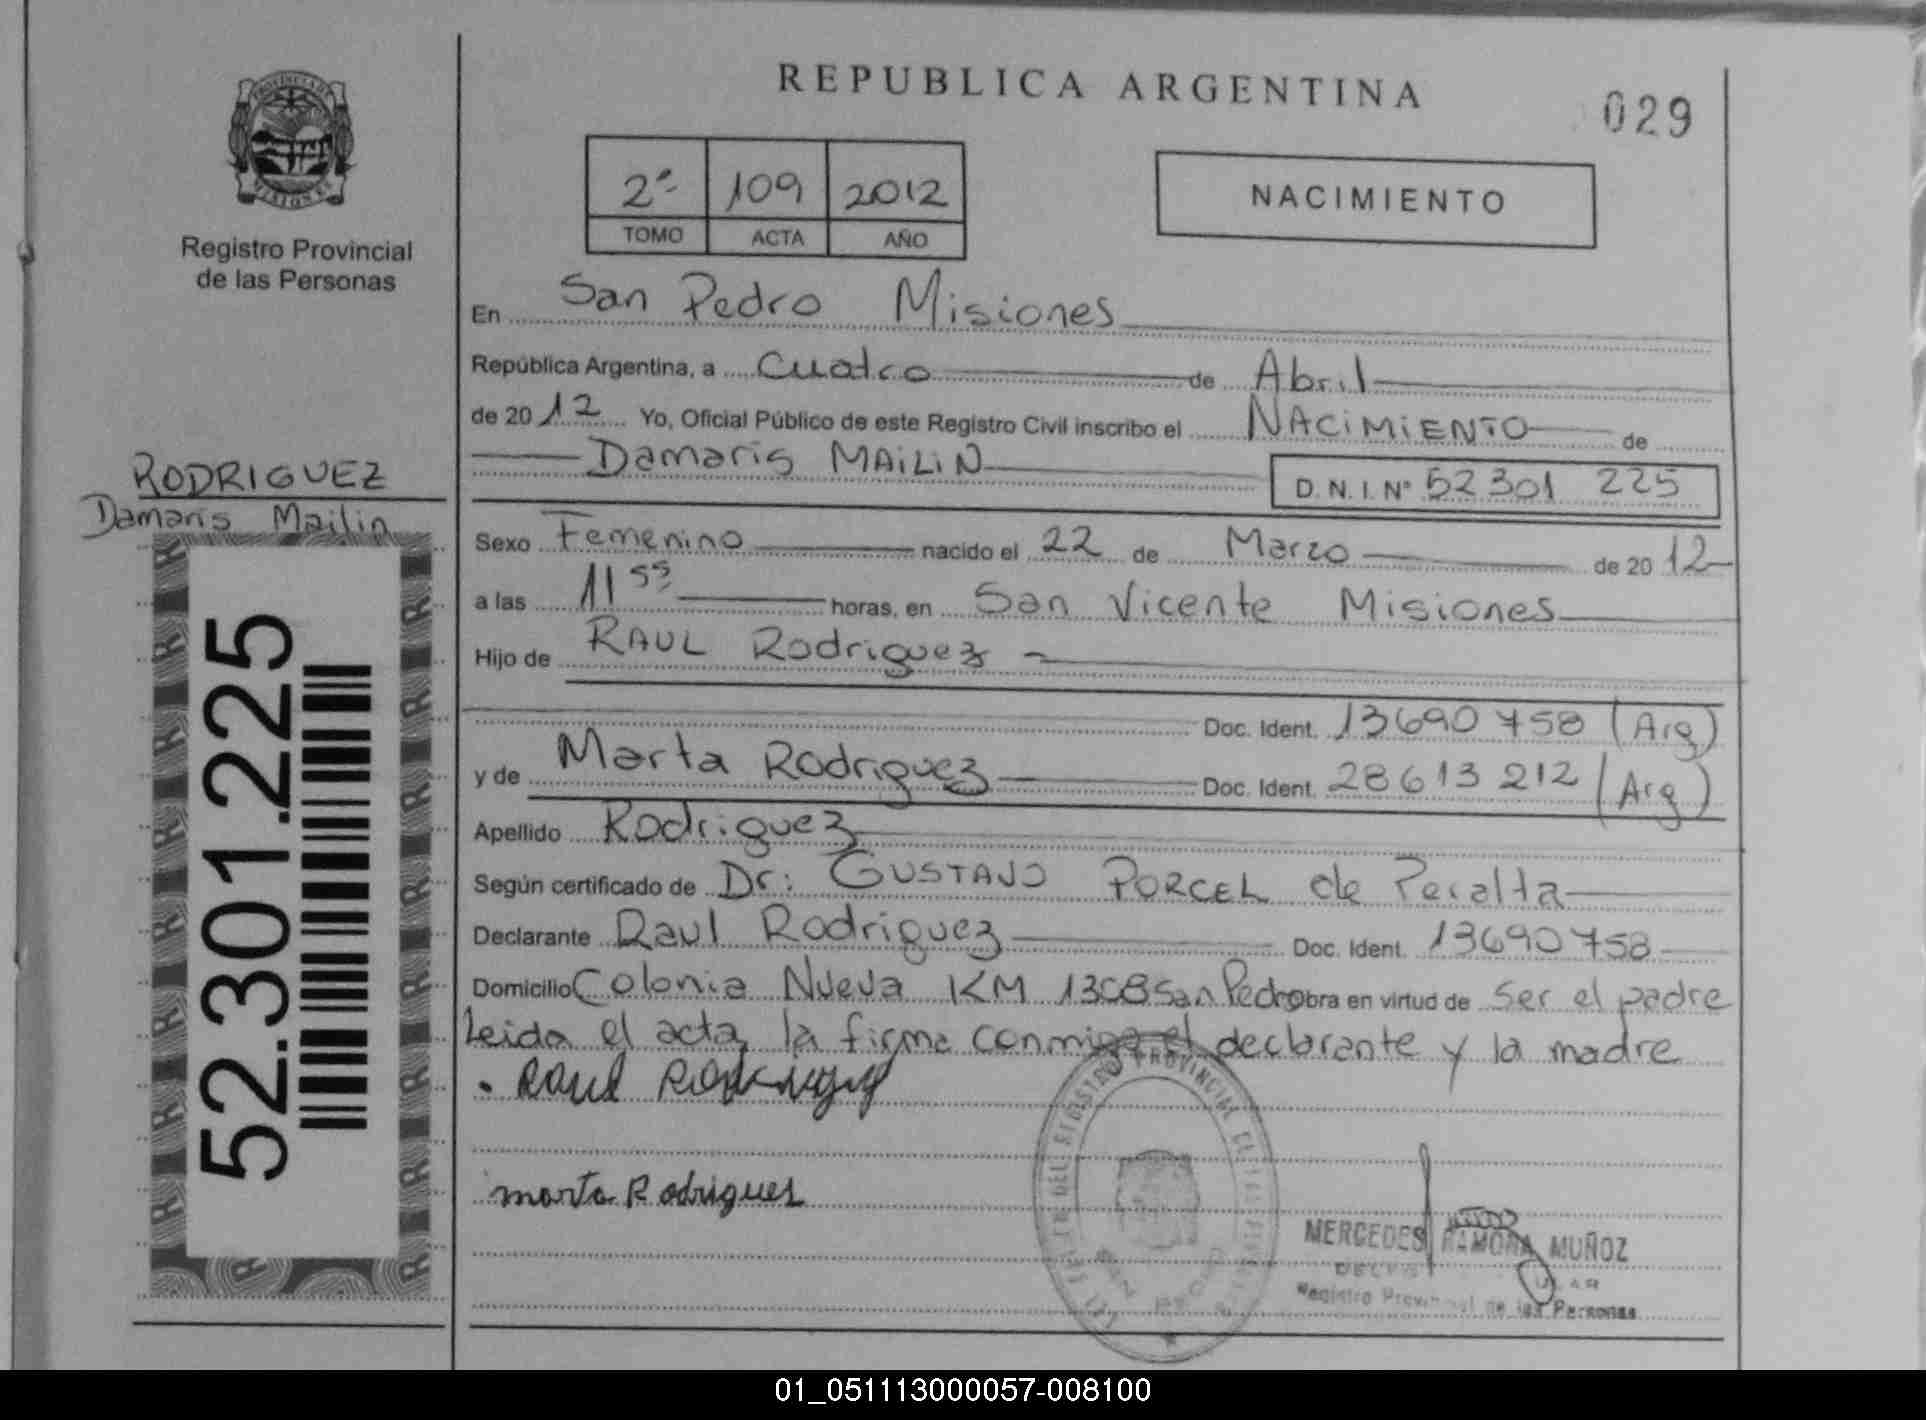 REPUBLICA ARGENTINA
029
2º 109 2012
TOMO ACTA AÑO
NACIMIENTO
PROVINCIA DE MISIONES
Registro Provincial
de las Personas
RODRIGUEZ
Damaris Mailin
52.301.225
En San Pedro Misiones
República Argentina, a Cuatro de Abril
de 2012 Yo, Oficial Público de este Registro Civil inscribo el NACIMIENTO de
Damaris MAILIN D.N.I. Nº 52 301 225
Sexo Femenino nacido el 22 de Marzo de 2012
a las 11 55 horas, en San Vicente Misiones
Hijo de RAUL Rodriguez
Doc. Ident. 13690758 (Arg)
y de Marta Rodriguez Doc. Ident. 28613212 (Arg)
Apellido Rodriguez
Según certificado de Dr: GUSTAVO PORCEL de Peralta
Declarante Raul Rodriguez Doc. Ident. 13690758
Domicilio Colonia Nueva KM 1308 San Pedro obra en virtud de ser el padre
Leida el acta, la firma conmigo el declarante y la madre
Raul
marta Rodrigues
MERCEDES RAMONA MUÑOZ
Registro Provincial de las Personas
01_051113000057-008100